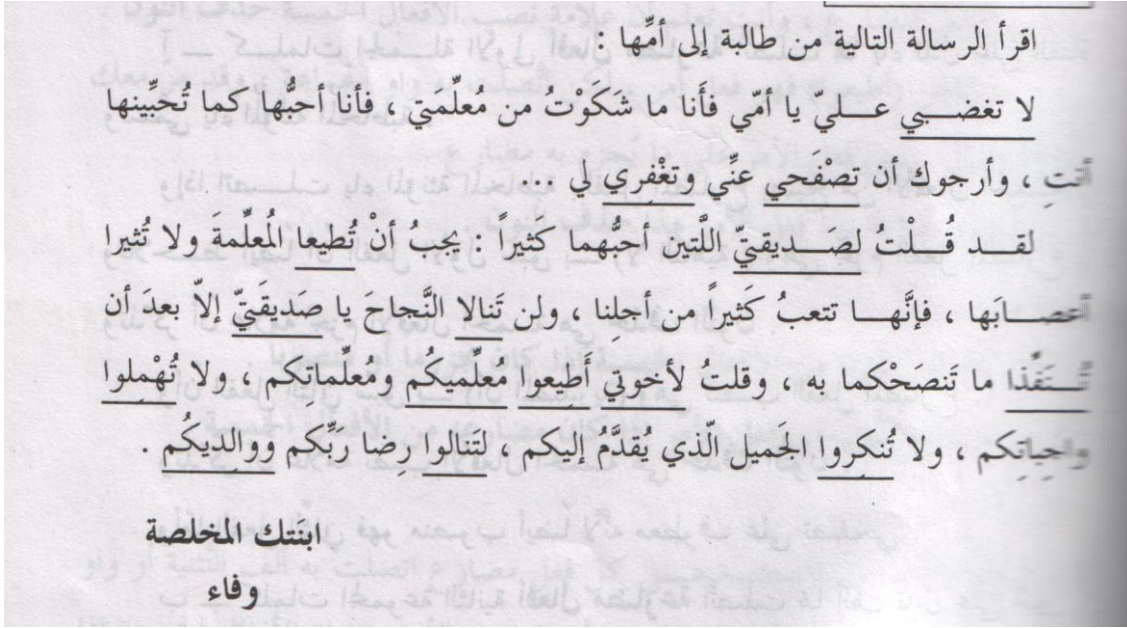 اقرأ الرسالة التالية من طالبة إلى أمِّها :
لا تغضبي عليّ يا أمّي فأَنا مَا شَكَوْتُ من مُعلِّمتي ، فأنا أحبُّها كما تُحَبِّينها
أنتِ ، وأرجوك أن تصْفَحي عنِّي وتغْفِري لي ...
لقد قُلْتُ لصَديقتيَّ اللَّتين أحبُّهما كَثيراً : يجبُ أنْ تُطيعا المُعلِّمةَ ولا تُثيرا
أعصابَها ، فإنَّها تتعبُ كَثيراً من أجلِنا ، ولن تَنالا النَّجاحَ يا صديقَتيَّ إلاّ بعدَ أن
تُنَفِّذا ما تَنصَحْكما به ، وقلتُ لأخوتي أَطِيعوا مُعلِّميكُم ومُعلِّماتِكم ، ولا تُهْمِلوا
واجِباتِكم ، ولا تُنكِروا الجَميل الّذي يُقدَّمُ إليكم ، لتَنالوا رِضا رَبِّكم ووالديكُم .
ابنَتك المخلصة
وفاء